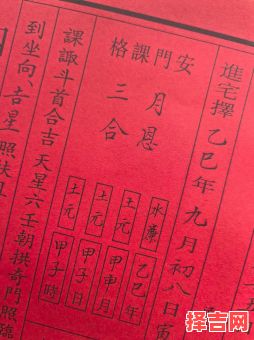 進宅擇乙巳年九月初八日寅
安門課格
月恩
三合
水廉 乙巳年
土元 甲申月
土元 甲子日
土元 甲子時
課諏斗首合吉 天星六壬朝拱奇門照臨
到坐向、吉星照扶
择吉网